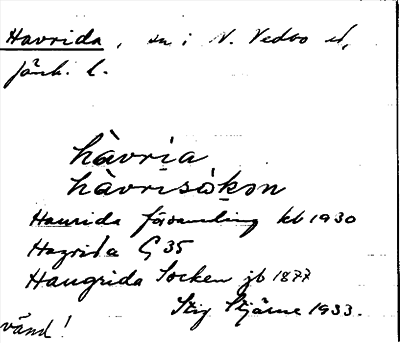 Havrida, sn i N. Vedbo hd,
Jönk. l.
hàvria
hàvrisòkən
Haurida församling kb 1930
Hagrida G 35
Haugrida Socken jb 1877
Stig Stjärne 1933.
vänd!